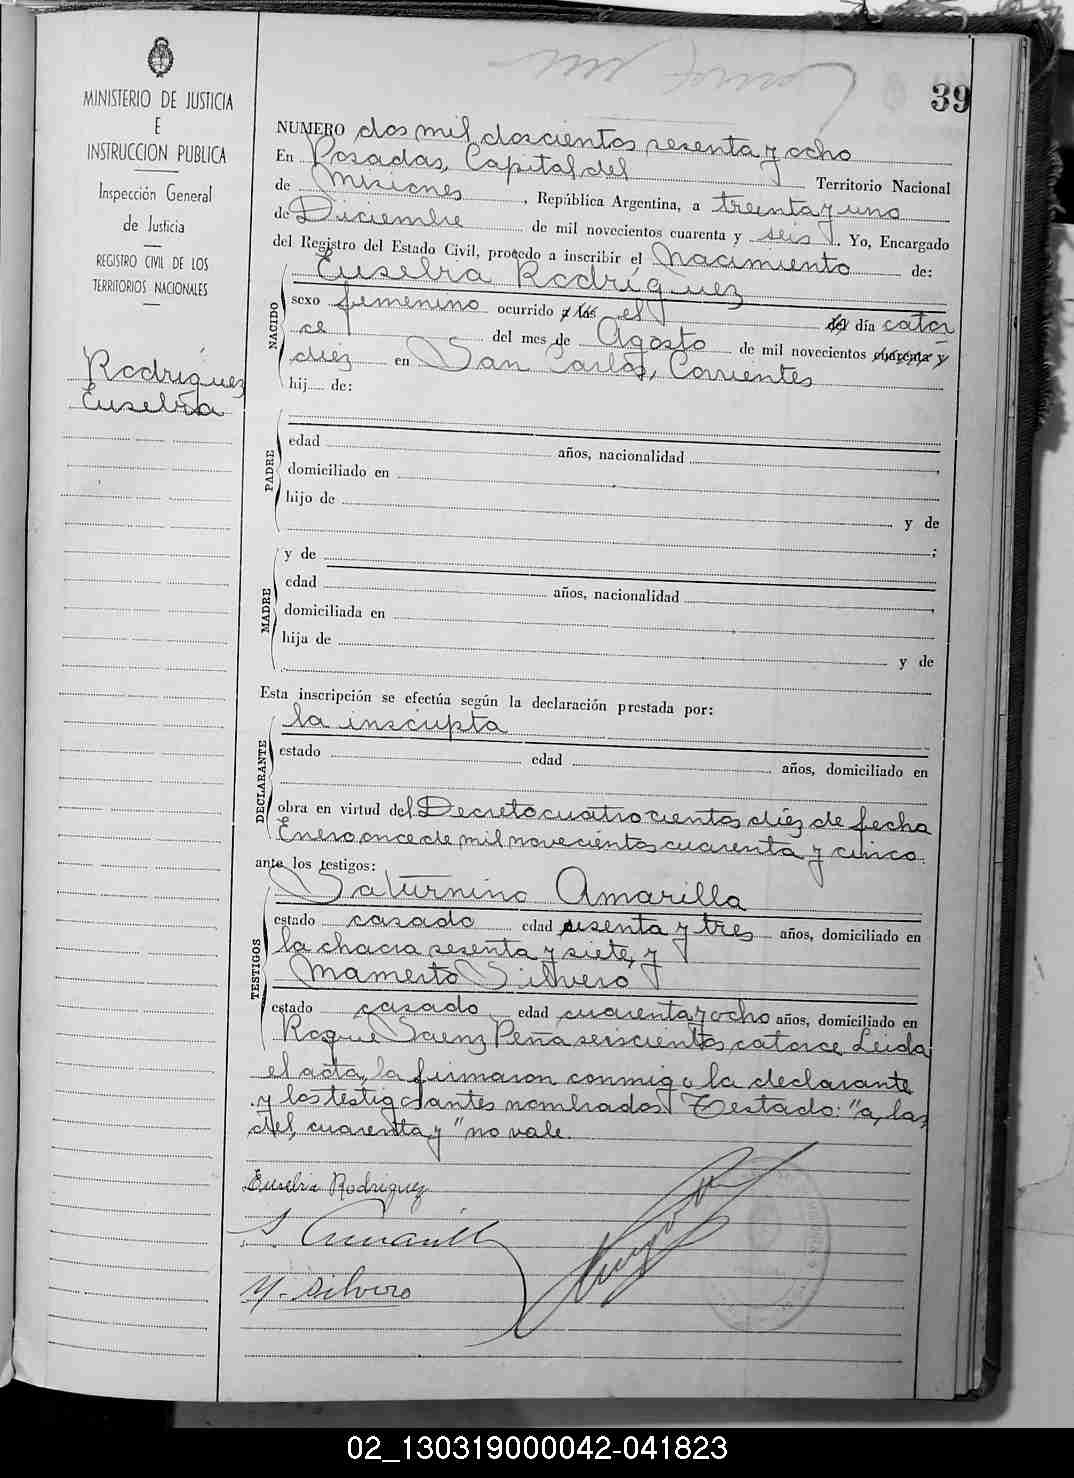 39
MINISTERIO DE JUSTICIA
E
INSTRUCCION PUBLICA
Inspección General
de Justicia
REGISTRO CIVIL DE LOS
TERRITORIOS NACIONALES
Rodríguez
Eusebia
NUMERO dos mil doscientos sesenta y ocho
En Posadas, Capital del Territorio Nacional
de Misiones, República Argentina, a treinta y uno
de Diciembre de mil novecientos cuarenta y seis. Yo, Encargado
del Registro del Estado Civil, procedo a inscribir el Nacimiento de:
Eusebia Rodríguez
NACIDO
sexo femenino ocurrido a las el del día cator
ce del mes de Agosto de mil novecientos cuarenta y
diez en San Carlos, Corrientes
hij de:
PADRE
edad años, nacionalidad
domiciliado en
hijo de y de
;
MADRE
y de
edad años, nacionalidad
domiciliada en
hija de y de
Esta inscripción se efectúa según la declaración prestada por:
la inscripta
DECLARANTE
estado edad años, domiciliado en
obra en virtud del Decreto cuatrocientos diez de fecha
Enero once de mil novecientos cuarenta y cinco.
ante los testigos:
TESTIGOS
Saturnino Amarilla
estado casado edad sesenta y tres años, domiciliado en
la chacra sesenta y siete, y
Mamerto Silvero
estado casado edad cuarenta y ocho años, domiciliado en
Roque Saenz Peña seiscientos catorce Leida
el acta, la firmaron conmigo la declarante
y los testigos antes nombrados Testado: "a, las,
del, cuarenta y" no vale.
Eusebia Rodriguez
S. Amarilla
M. Silvero
02_130319000042-041823